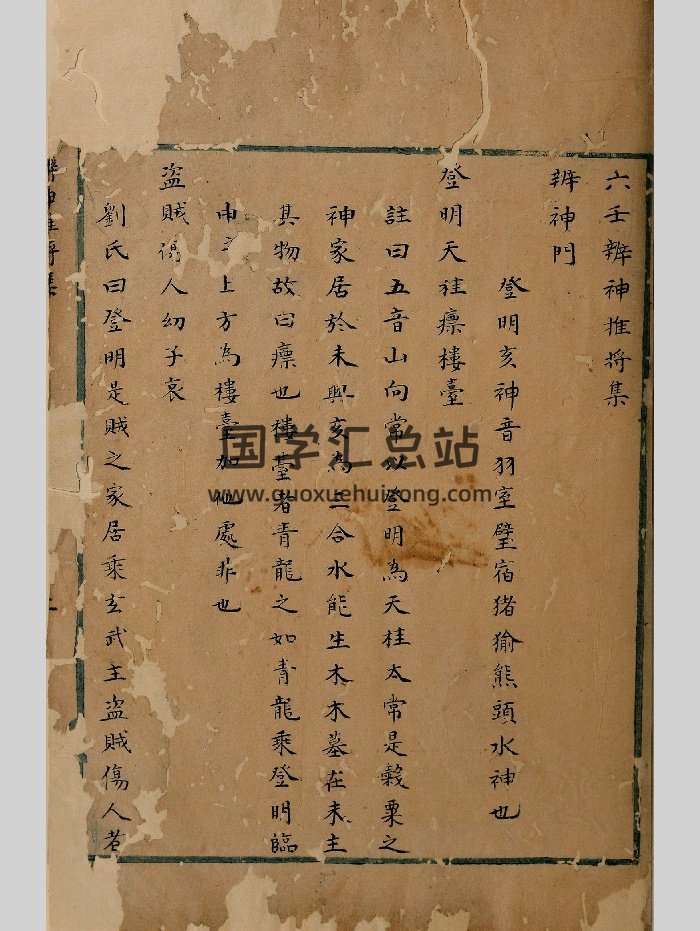 六壬辨神推將集
辨神門
登明亥神音羽室璧宿猪㺄熊頭水神也
登明天柱廪樓臺
註曰五音山向常以登明為天柱太常是穀粟之
神家居於未與亥為三合水能生木木墓在未主
其物故曰廪也樓臺者青龍之如青龍乘登明臨
申 上方為樓臺加他處非也
盗賊傷人幼子哀
劉氏曰登明是賊之家居乘玄武主盗賊傷人若
國学汇总站
www.guoxuehuizong.com